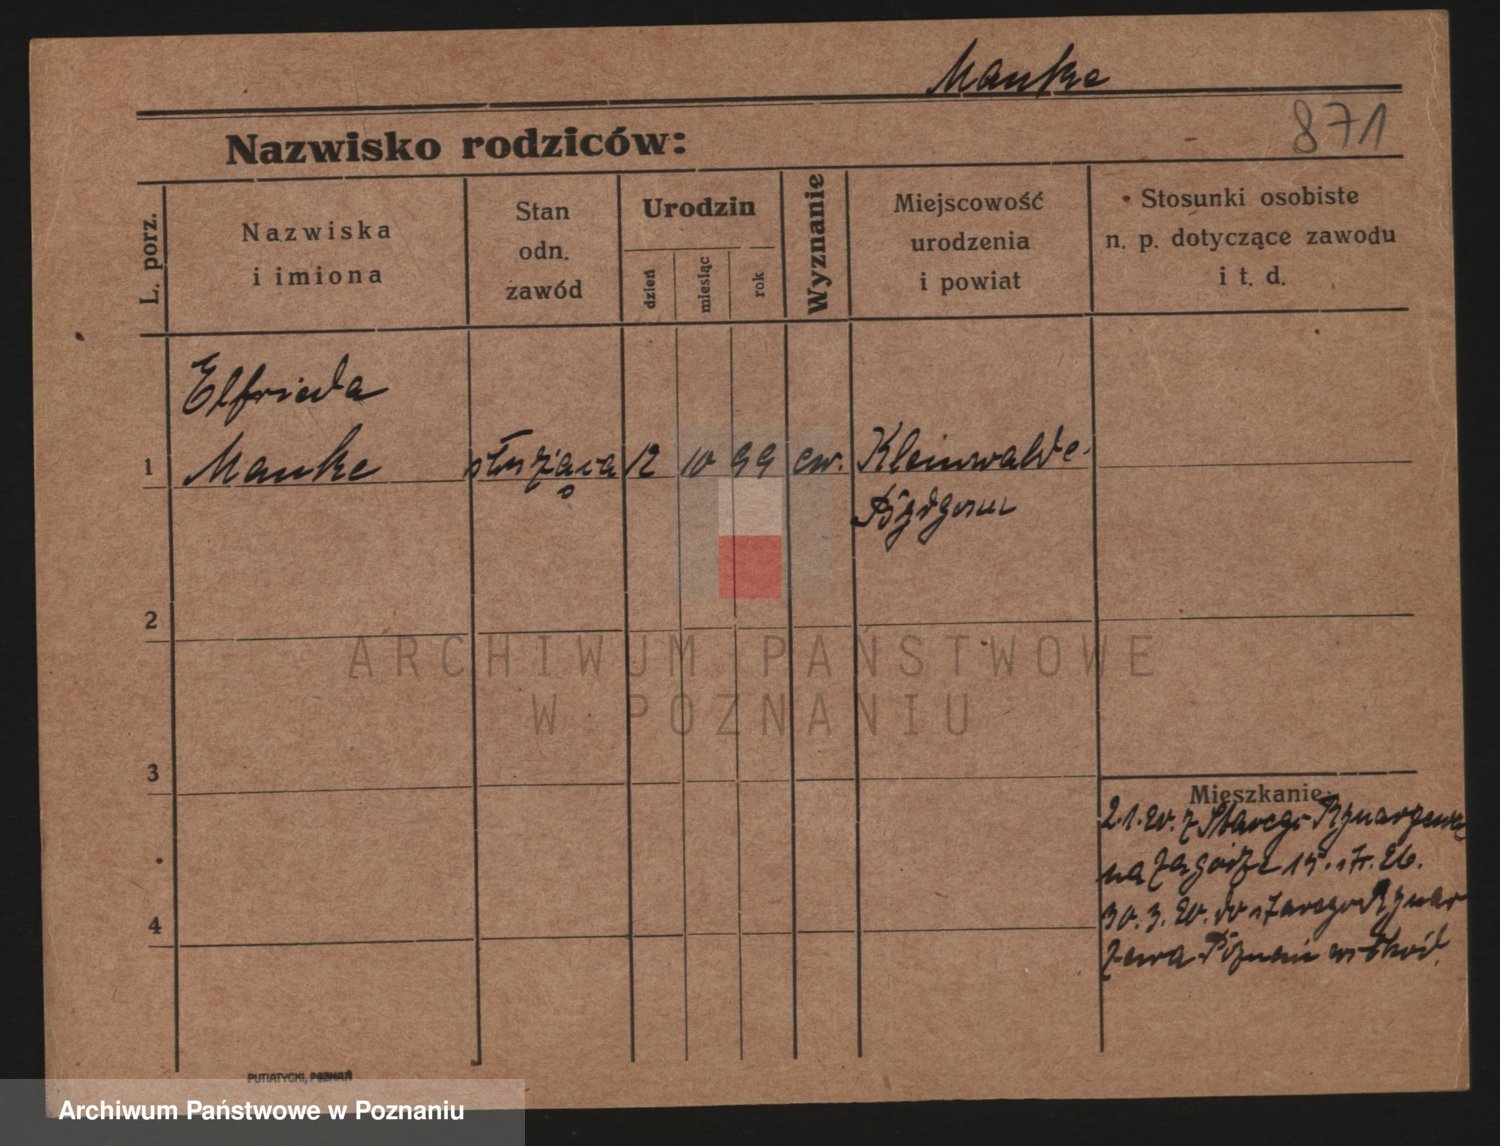 Manke
871
Nazwisko rodziców:
L. porz.
Nazwiska
i imiona
Stan
odn.
zawód
Urodzin
dzień
miesiąc
rok
Wyznanie
Miejscowość
urodzenia
i powiat
Stosunki osobiste
n. p. dotyczące zawodu
i t. d.
Elfrieda
1 Manke służąca 12 10 99 ew. Kleinwalde
2
ARCHIWUM PAŃSTWOWE
W POZNANIU
3
Mieszkanie:
2.1.20. z Starego Rynarzewa
na Zagórze 15.
4
30.3.20. do starego Rynar
zewa Poznań
PUTIATYCKI, POZNAŃ
Archiwum Państwowe w Poznaniu